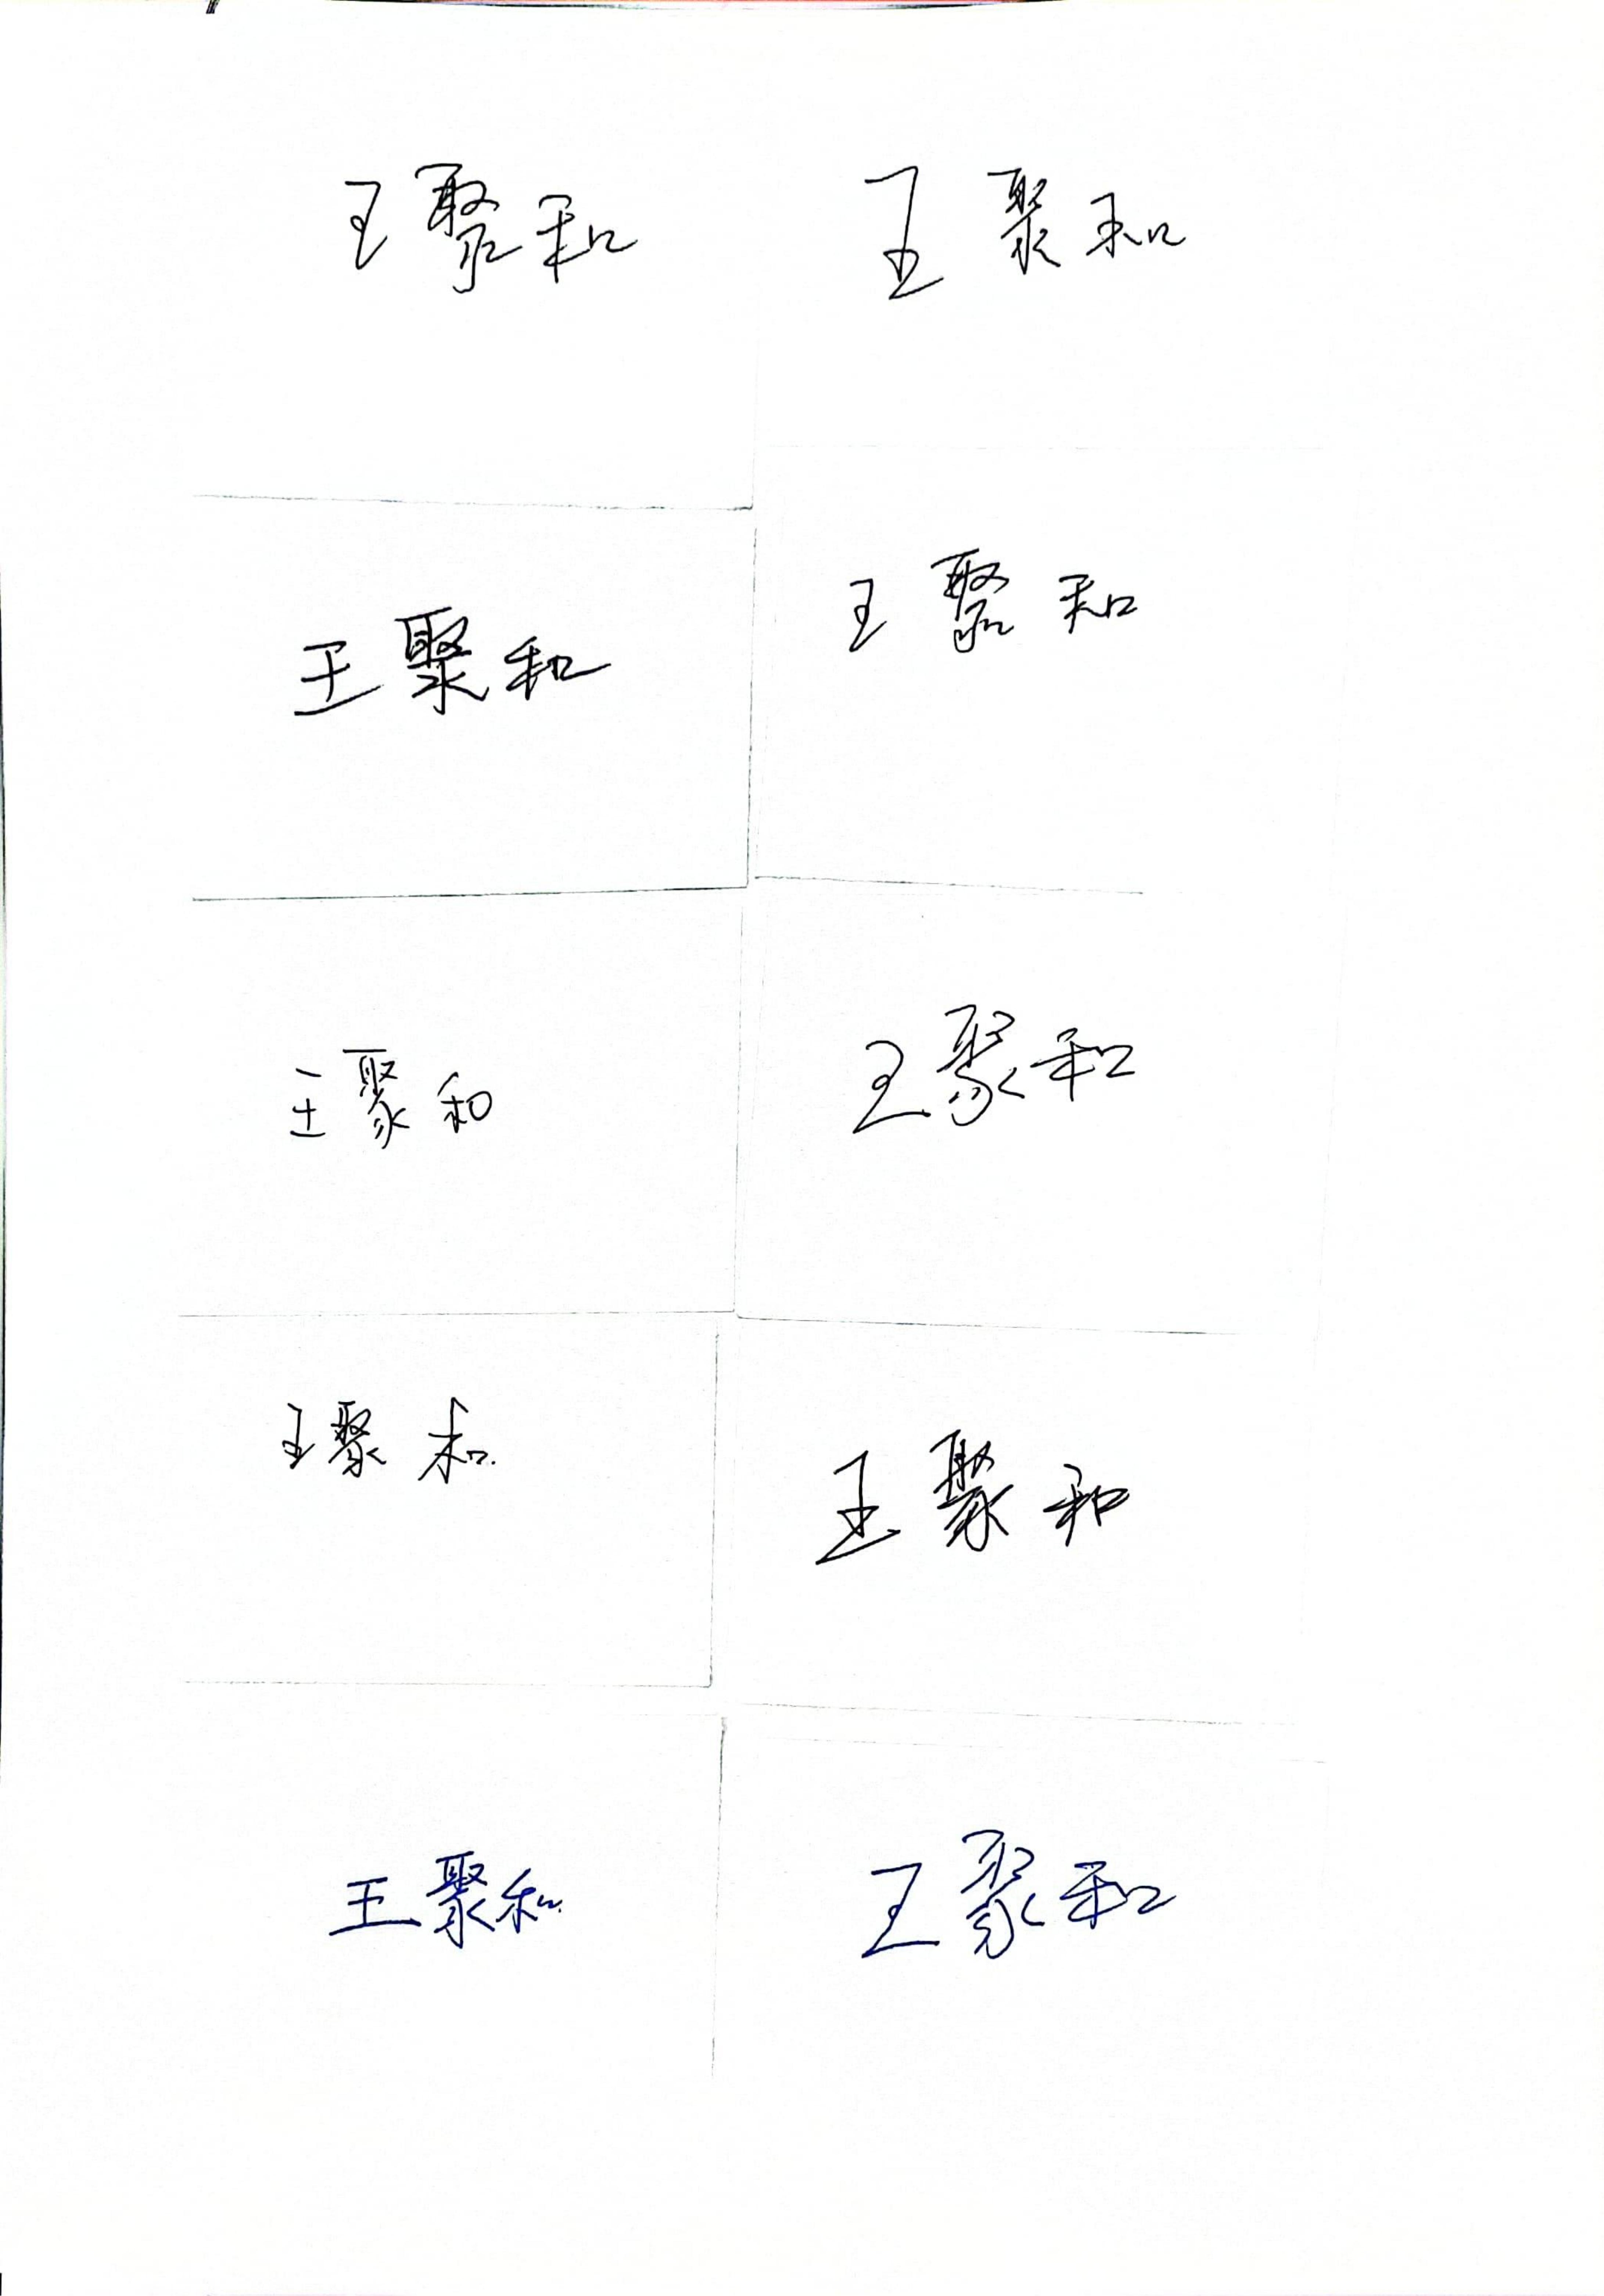 王聚和 王聚和
王聚和 王聚和
王聚和 王聚和
王聚和 王聚和
王聚和 王聚和